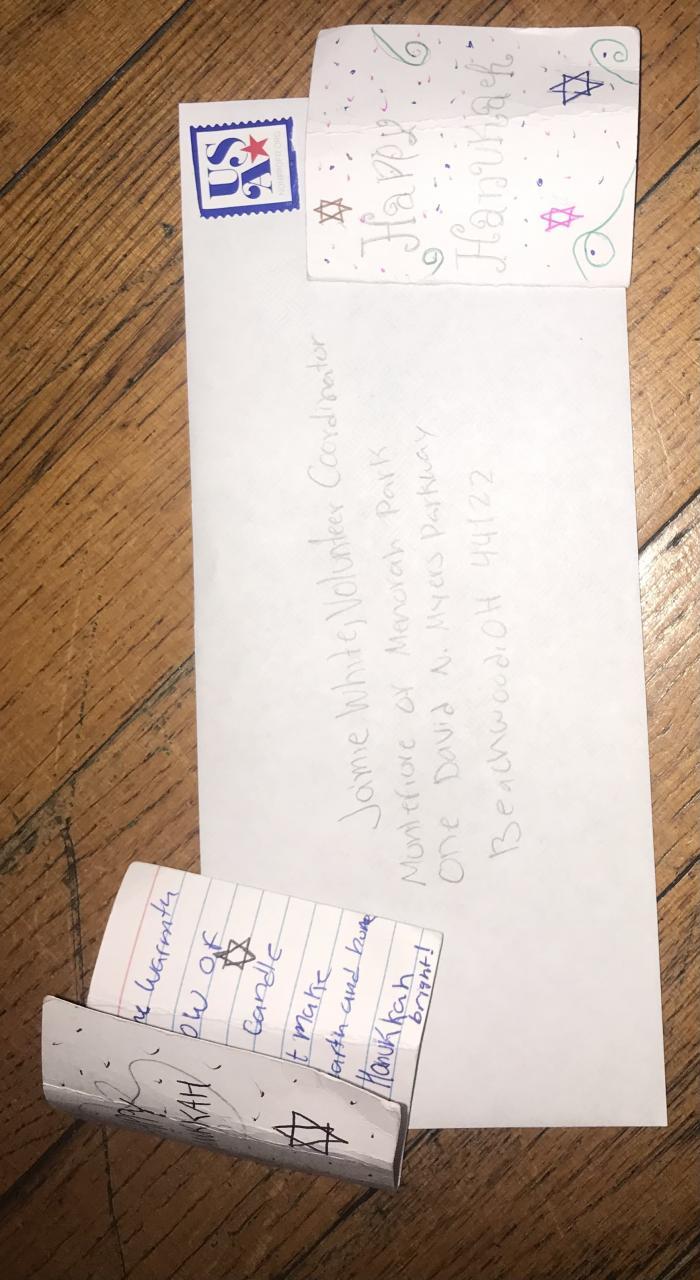 USA
NONPROFIT ORG
Happy
Hanukah
Jamie White, Volunteer Coordinator
Montefiore or Menorah Park
One David N. Myers Parkway
Beachwood, OH 44122
warmth
OW OF
candle
t make
arth and home
Hanukkah
bright!
KKAH